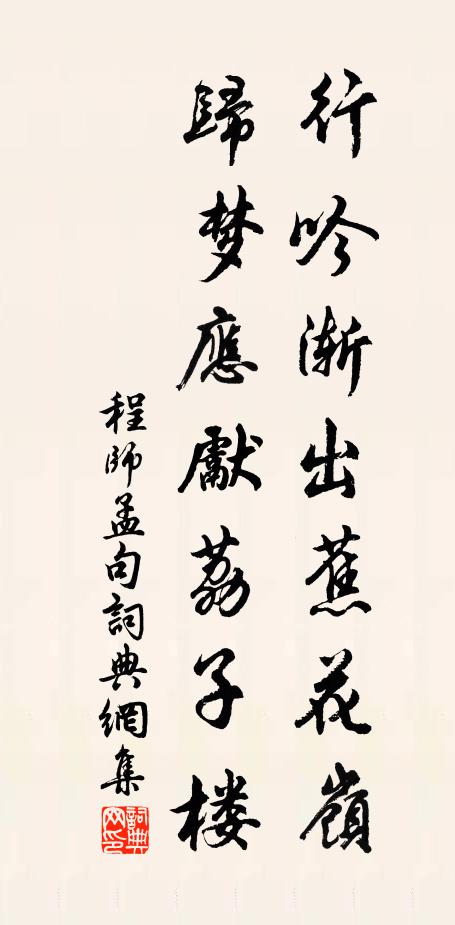 行吟漸出蕉花嶺
歸梦應獻荔子楼
程師孟句詞典網集
詞典网印